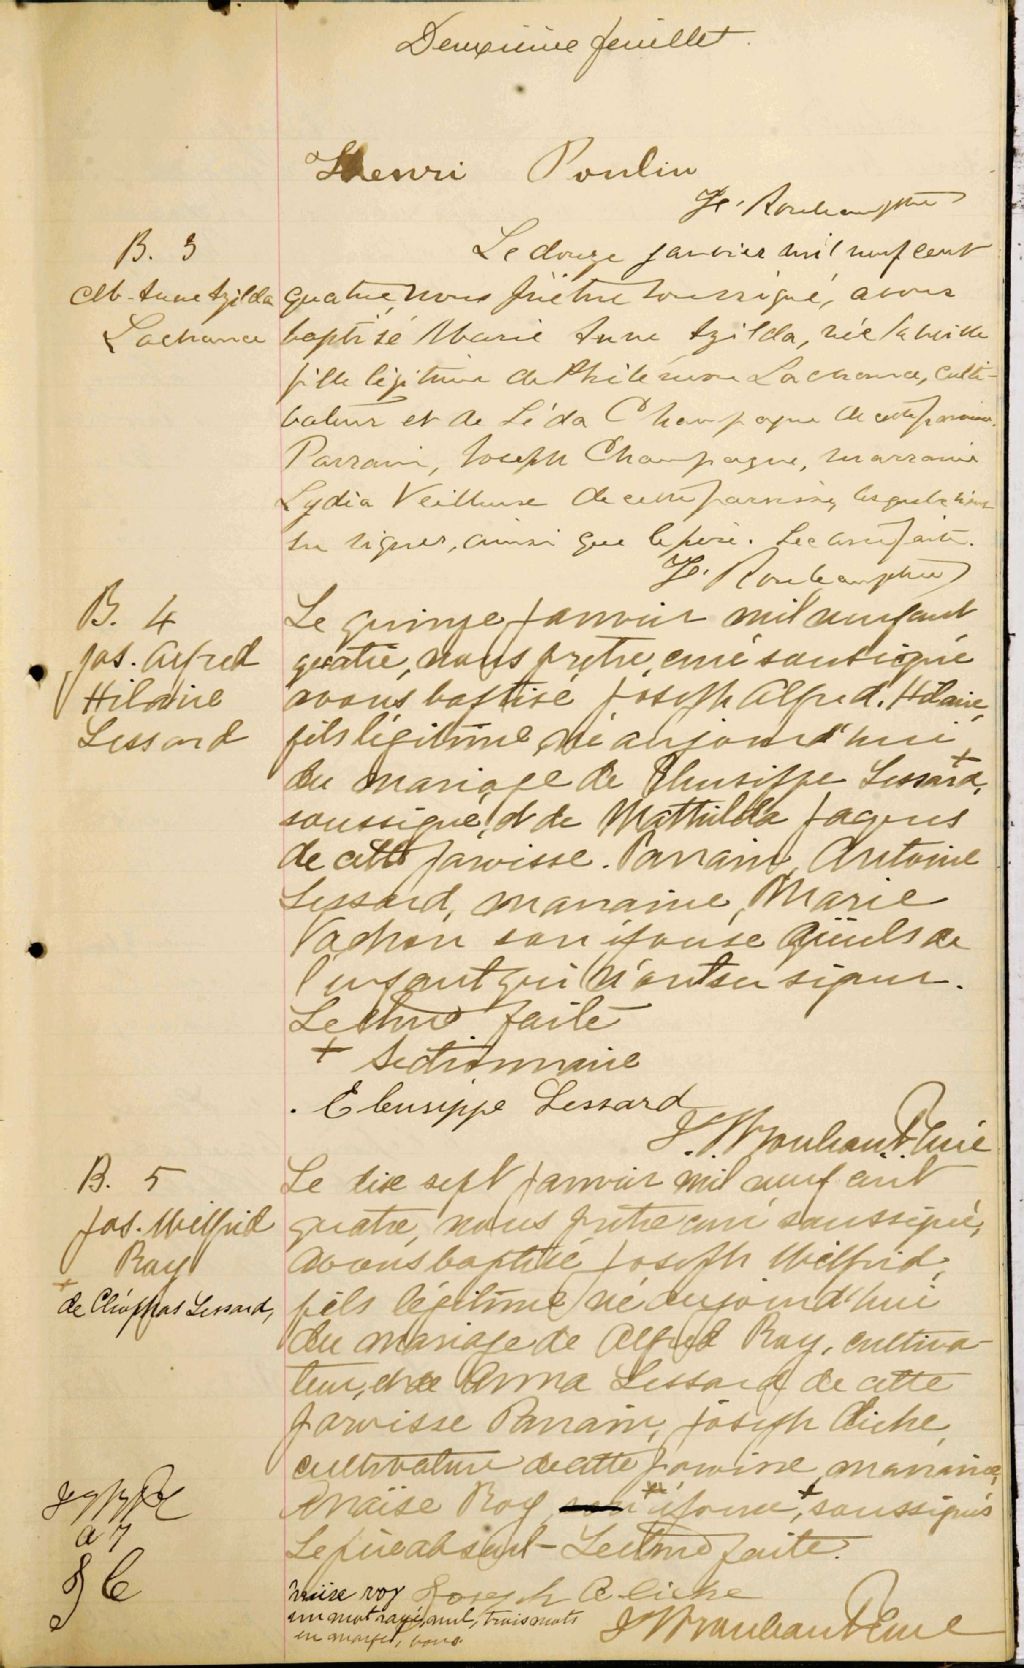 Deuxième feuillet.
Henri Poulin
B. 3
M-Anne Azilda
Lachance
Le douze janvier mil neuf cent
quatre, nous prêtre soussigné, avons
baptisé Marie Anne Azilda, née la veille
fille légitime de Philémon Lachance, culti-
vateur et de Léda Champagne de cette paroisse.
Parrain, Joseph Champagne, marraine
Lydia Veilleuse de cette paroisse, lesquels n'ont
su signer, ainsi que le père. Lecture faite.
B. 4
Jos. Alfred
Hilaire
Lessard
Le quinze janvier mil neuf cent
quatre, nous prêtre, curé soussigné
avons baptisé Joseph Alfred. Hilaire,
fils légitime, né aujourd'hui
du mariage de Eleusippe Lessard+,
soussigné, et de Mathilda Jacques
de cette paroisse. Parrain, Antoine
Lessard, marraine, Marie
Vachon son épouse aïeuls de
l'enfant qui n'ont su signer.
Lecture faite
+ Lectionnaire
Eleusippe Lessard
B. 5
Jos. Wilfrid
Roy
+
de Cléophas Lessard,
Le dix sept janvier mil neuf cent
quatre, nous prêtre curé soussigné,
avons baptisé Joseph Wilfrid,
fils légitime né aujourd'hui
du mariage de Alfred Roy, cultiva-
teur, et de Anna Lessard de cette
paroisse Parrain, Joseph Cliche,
cultivateur de cette paroisse, marraine,
Anaïse Roy, épouse +, soussignés
Le père absent - Lecture faite.
naïse roy Joseph Cliche
un mot rayé, nul, trois mots
en marge, bons